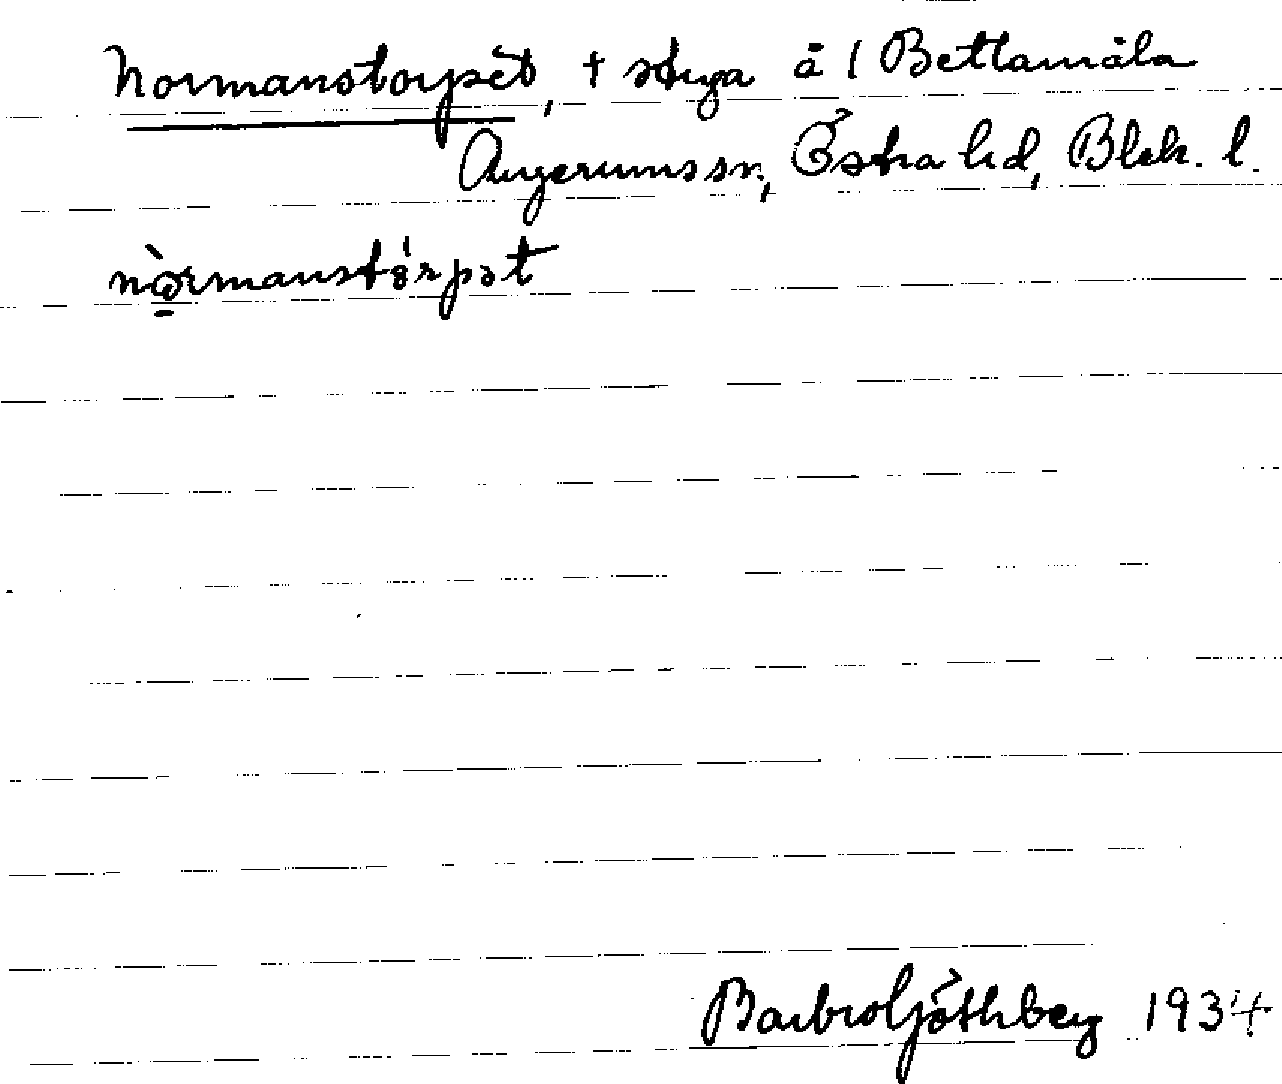 Normanstorpet, + stuga å 1 Bettamåla
Augerums sn, Östra hd, Blek. l.
nòrmanstórpət
Barbro Göthberg 1934